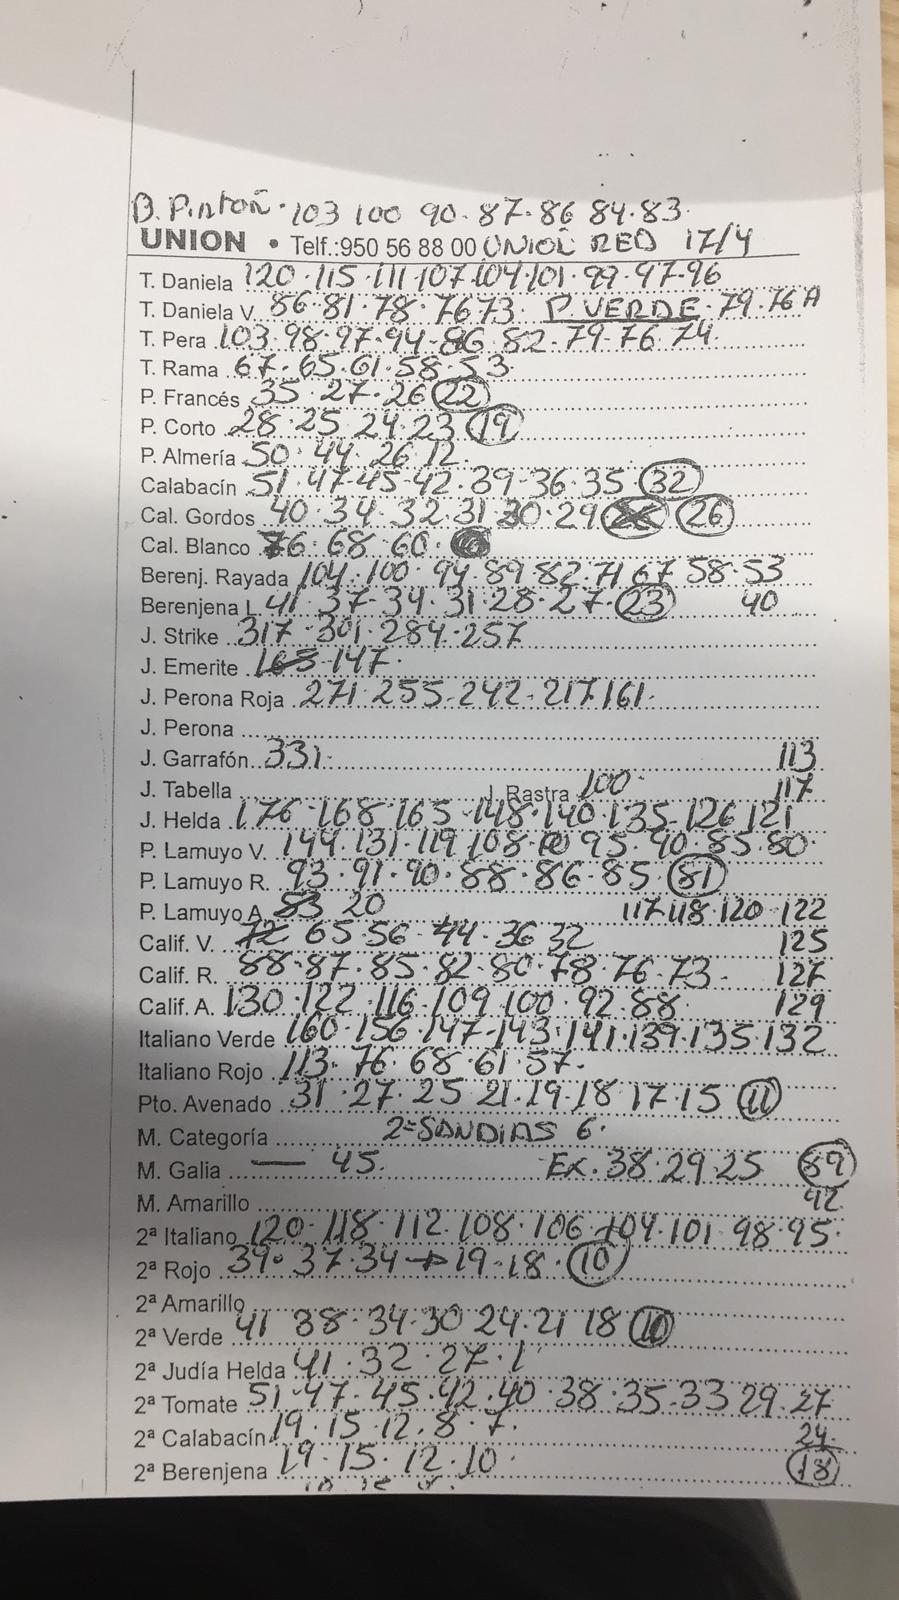 D. Pinton · 103 100 90 · 87 · 86 84 · 83
UNION • Telf.:950 56 88 00 UNION RED 17/4
T. Daniela 120 · 115 · 111 · 107 · 104 · 101 · 99 · 97 · 96
T. Daniela V. 86 · 81 · 78 · 76 73 P. VERDE · 79 · 76 A
T. Pera 103 · 98 · 97 · 94 · 86 · 82 · 79 · 76 · 74
T. Rama 67 · 65 · 61 · 58 · 53
P. Francés 35 · 27 · 26 22
P. Corto 28 · 25 24 · 23 19
P. Almería 50 · 44 · 26 12
Calabacín 51 · 47 · 45 · 42 · 39 · 36 · 35 32
Cal. Gordos 40 · 34 · 32 · 31 · 30 · 29 26
Cal. Blanco 76 · 68 · 60 ·
Berenj. Rayada 104 · 100 · 94 · 89 · 82 · 71 67 58 · 53
Berenjena L. 41 · 37 · 34 · 31 · 28 · 27 · 23 40
J. Strike 317 · 301 · 284 · 257
J. Emerite 165 · 147 ·
J. Perona Roja 271 · 255 · 242 · 217 · 161 ·
J. Perona
J. Garrafón 331 · 113
J. Tabella J. Rastra 100 · 117
J. Helda 176 · 168 · 165 · 148 · 140 · 135 · 126 121
P. Lamuyo V. 144 · 131 · 119 · 108 · 95 · 90 · 85 · 80 ·
P. Lamuyo R. 93 · 91 · 90 · 88 · 86 · 85 81
P. Lamuyo A. 53 20 117 118 · 120 · 122
Calif. V. 72 65 · 56 · 44 · 36 32 125
Calif. R. 88 · 87 · 85 · 82 · 80 · 78 · 76 · 73 · 127
Calif. A. 130 · 122 · 116 · 109 · 100 · 92 · 88 129
Italiano Verde 160 · 156 · 147 · 143 · 141 · 139 · 135 · 132
Italiano Rojo 113 · 76 · 68 · 61 · 57 ·
Pto. Avenado 31 · 27 · 25 21 · 19 · 18 17 · 15 11
M. Categoría 2ª SANDIAS 6 ·
M. Galia — 45 · Ex. 38 · 29 · 25 59
M. Amarillo 42
2ª Italiano 120 · 118 · 112 · 108 · 106 · 104 · 101 98 · 95 ·
2ª Rojo 39 · 37 · 34 → 19 · 18 · 10
2ª Amarillo
2ª Verde 41 38 · 34 · 30 24 · 21 18 10
2ª Judía Helda 41 · 32 · 27 · 1
2ª Tomate 51 · 47 · 45 · 42 · 40 · 38 · 35 · 33 29 · 27
2ª Calabacín 19 · 15 · 12 · 8 · 7 · 24
2ª Berenjena 19 · 15 · 12 · 10 · 18